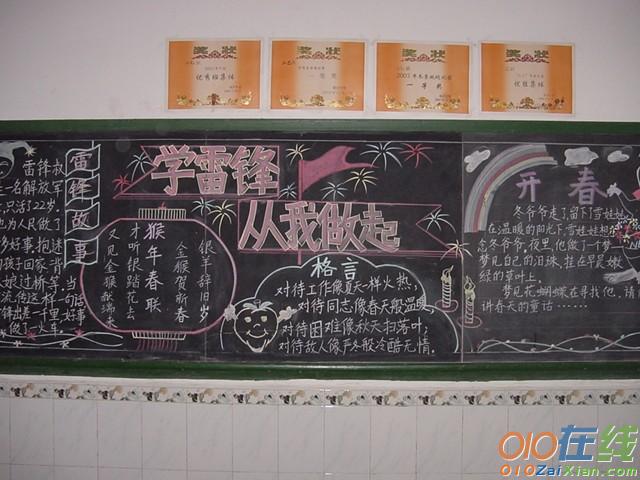 奖状
奖状
奖状
奖状
优秀班集体
一等奖
一等奖
学雷锋
从我做起
雷锋故事
雷锋叔
一名解放军
只活了22岁,
也为人民做了
好事:抱迷
孩子回家,背
大娘过桥等,
流传这样一句话
锋出差一千里,
好事做了一火车。
猴年春联
银羊辞旧岁
金猴贺新春
才听银蹄花去
又见金猴献瑞
格言
对待工作像夏天一样火热,
对待同志像春天般温暖,
对待困难像秋天扫落叶;
对待敌人像严冬般冷酷无情。
开春
冬爷爷走了,留下雪娃娃
在温暖的阳光下,雪娃娃想
念冬爷爷,夜里,他做了个梦,
梦见自己的泪珠,挂在野是嫩
绿的草叶上。
梦见花蝴蝶在寻找他,请
讲春天的童话……
010在线
010ZaiXian.com